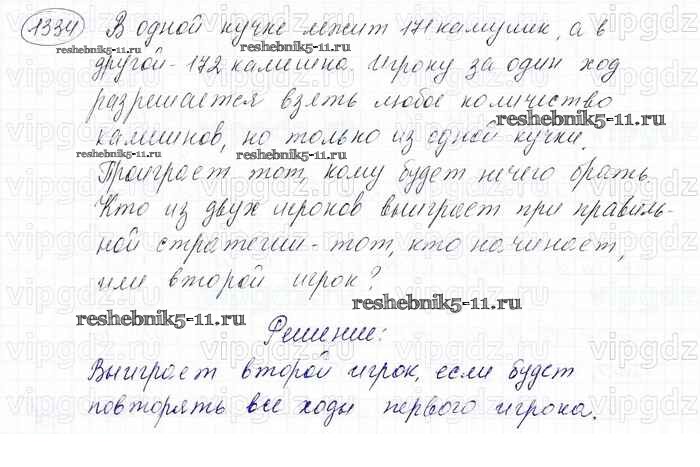 1334 В одной кучке лежит 171 камушик, а в
reshebnik5-11.ru
другой - 172 камешка. Игроку за один ход
разрешается взять любое количество
reshebnik5-11.ru
камешков, но только из одной кучки.
reshebnik5-11.ru reshebnik5-11.ru
Проиграет тот, кому будет нечего брать.
Кто из двух игроков выиграет при правиль-
ной стратегии - тот, кто начинает,
или второй игрок?
reshebnik5-11.ru
reshebnik5-11.ru
Решение:
Выиграет второй игрок, если будет
повторять все ходы первого игрока.
vipgdz